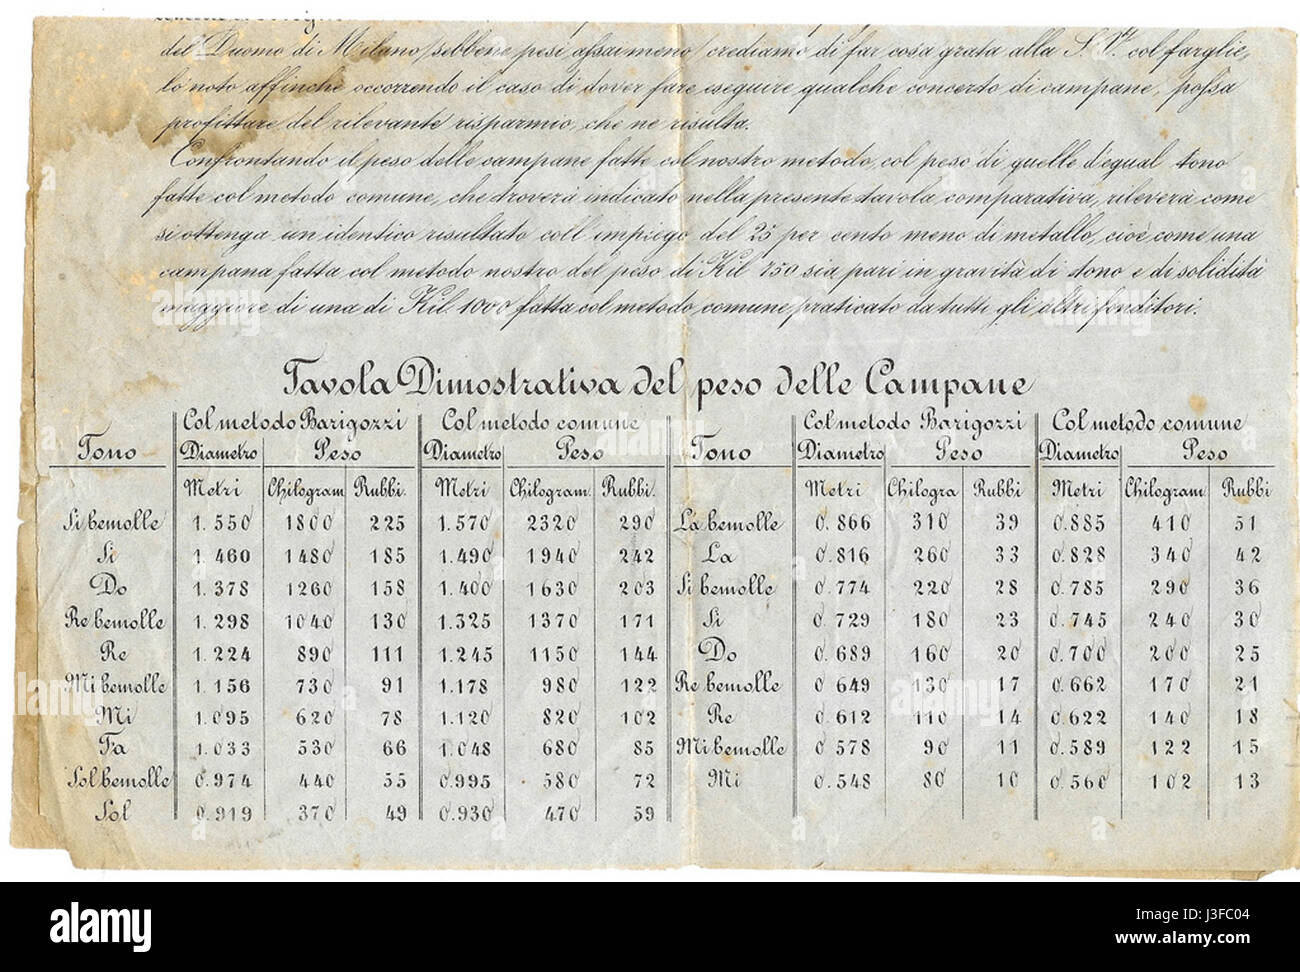 del Duomo di Milano, sebbene pesi assai meno, crediamo di far cosa grata alla S. V. col farglie,
lo noto affinchè occorrendo il caso di dover fare eseguire qualche concerto di campane, possa
profittare del rilevante risparmio, che ne risulta.
Confrontando il peso delle campane fatte col nostro metodo, col peso di quelle d'egual tono
fatte col metodo comune, che troverà indicato nella presente tavola comparativa, rileverà come
si ottenga un identico risultato coll'impiego del 25 per cento meno di metallo, cioè come una
campana fatta col metodo nostro del peso di Kil 750 sia pari in gravità di tono e di solidità
maggiore di una di Kil. 1000 fatta col metodo comune, praticato da tutti gli altri fonditori.
Tavola Dimostrativa del peso delle Campane
Tono Col metodo Barigozzi Col metodo comune Tono Col metodo Barigozzi Col metodo comune
Diametro Peso Diametro Peso Diametro Peso Diametro Peso
Metri Chilogram Rubbi. Metri Chilogram. Rubbi. Metri Chilogra Rubbi Metri Chilogram Rubbi
Si bemolle 1.550 1800 225 1.570 2320 290 La bemolle 0.866 310 39 0.885 410 51
Si 1.460 1480 185 1.490 1940 242 La 0.816 260 33 0.828 340 42
Do 1.378 1260 158 1.400 1630 203 Si bemolle 0.774 220 28 0.785 290 36
Re bemolle 1.298 1040 130 1.325 1370 171 Si 0.729 180 23 0.745 240 30
Re 1.224 890 111 1.245 1150 144 Do 0.689 160 20 0.700 200 25
Mi bemolle 1.156 730 91 1.178 980 122 Re bemolle 0.649 130 17 0.662 170 21
Mi 1.095 620 78 1.120 820 102 Re 0.612 110 14 0.622 140 18
Fa 1.033 530 66 1.048 680 85 Mi bemolle 0.578 90 11 0.589 122 15
Sol bemolle 0.974 440 55 0.995 580 72 Mi 0.548 80 10 0.560 102 13
Sol 0.919 370 49 0.930 470 59
alamy
a
alamy stock photo
J3FC04
www.alamy.com